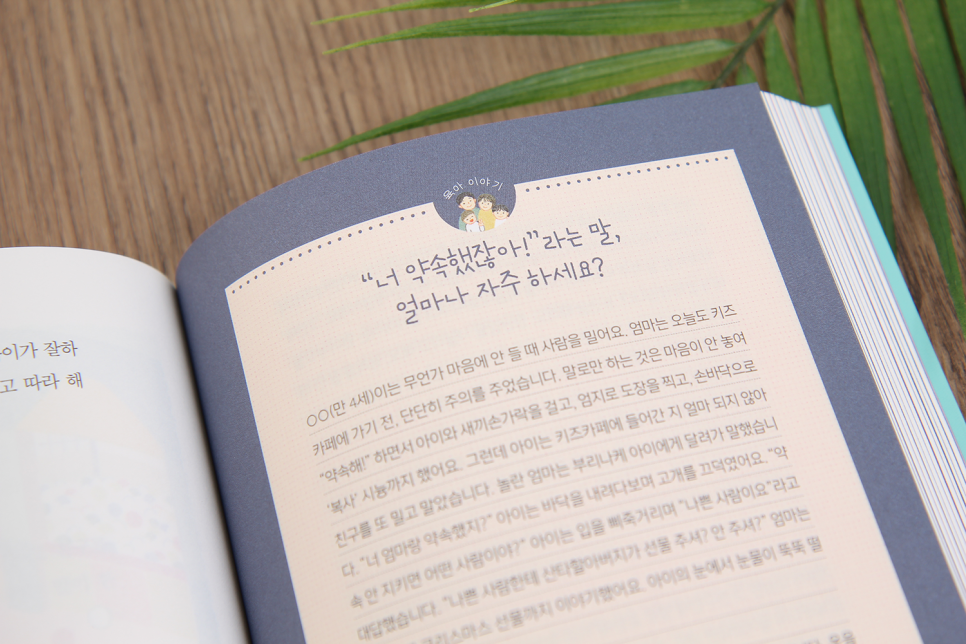 이가 잘하
고 따라 해
육아 이야기
“너 약속했잖아!”라는 말,
얼마나 자주 하세요?
○○(만 4세)이는 무언가 마음에 안 들 때 사람을 밀어요. 엄마는 오늘도 키즈
카페에 가기 전, 단단히 주의를 주었습니다. 말로만 하는 것은 마음이 안 놓여
“약속해!” 하면서 아이와 새끼손가락을 걸고, 엄지로 도장을 찍고, 손바닥으로
‘복사’ 시늉까지 했어요. 그런데 아이는 키즈카페에 들어간 지 얼마 되지 않아
친구를 또 밀고 말았습니다. 놀란 엄마는 부리나케 아이에게 달려가 말했습니
다. “너 엄마랑 약속했지?” 아이는 바닥을 내려다보며 고개를 끄덕였어요. “약
속 안 지키면 어떤 사람이야?” 아이는 입을 삐죽거리며 “나쁜 사람이요”라고
대답했습니다. “나쁜 사람한테 산타할아버지가 선물 주셔? 안 주셔?” 엄마는
크리스마스 선물까지 이야기했어요. 아이의 눈에서 눈물이 뚝뚝 떨